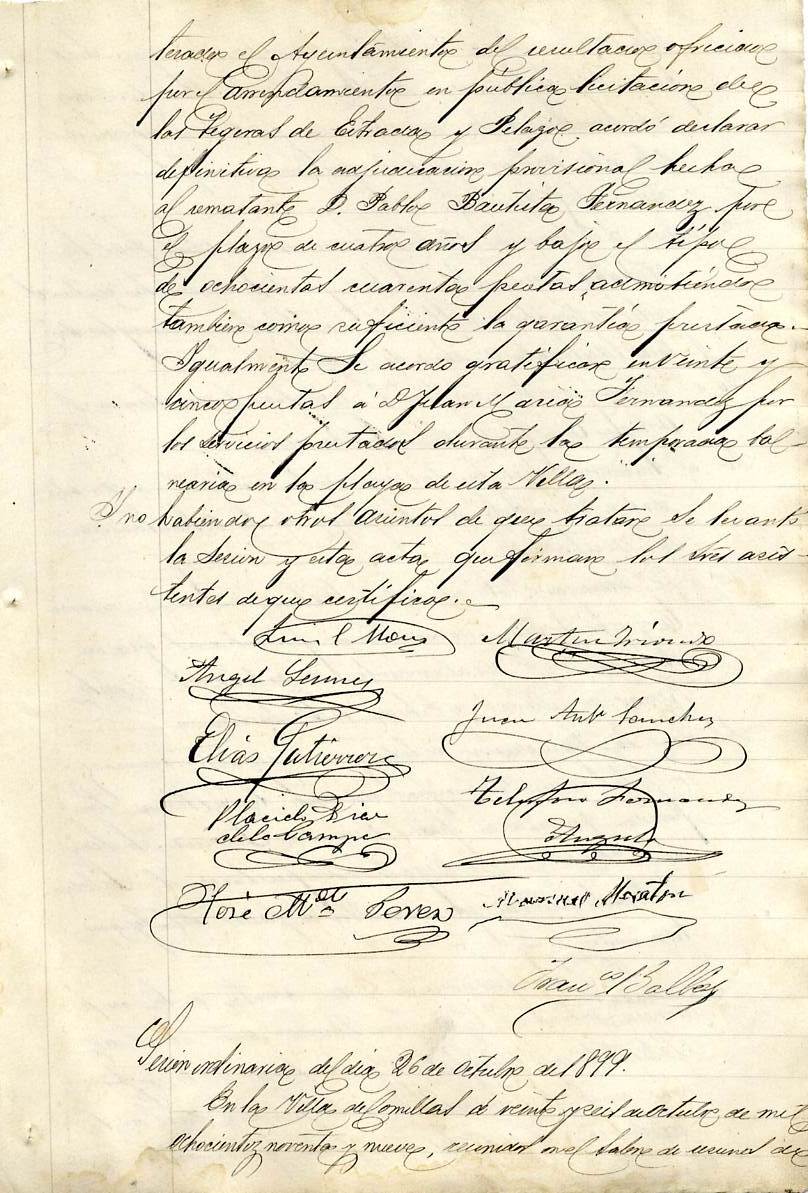 terado el Ayuntamiento del resultado ofrecido
por el arrendamiento en publica licitacion de
las Tegeras de Estrada y Pelazo acordó declarar
definitiva la adjudicacion provisional hecha
al rematante D. Pablo Bautista Fernandez por
el plazo de cuatro años y bajo el tipo
de ochocientas cuarenta pesetas, admitiendo
tambien como suficiente la garantia prestada.
Igualmente se acordo gratificar en veinte y
cinco pesetas á D. Juan Maria Fernandez por
los servicios prestados durante la temporada bal-
nearia en la playa de esta Villa.
Y no habiendo otros asuntos de que tratar se levantó
la sesion y esta acta que firman los Sres asis-
tentes de que certifico.
Martin
Angel
Juan Anto Sanchez
Elias Gutierrez
Placido Diaz
de la Campa
Telesforo Fernandez
José Ma Perez
Manuel Moraton
Franco Balbas
Sesion ordinaria del dia 26 de Octubre de 1899.
En la Villa de Comillas á veinte y seis de Octubre de mil
ochocientos noventa y nueve, reunidos en el Salon de sesiones de